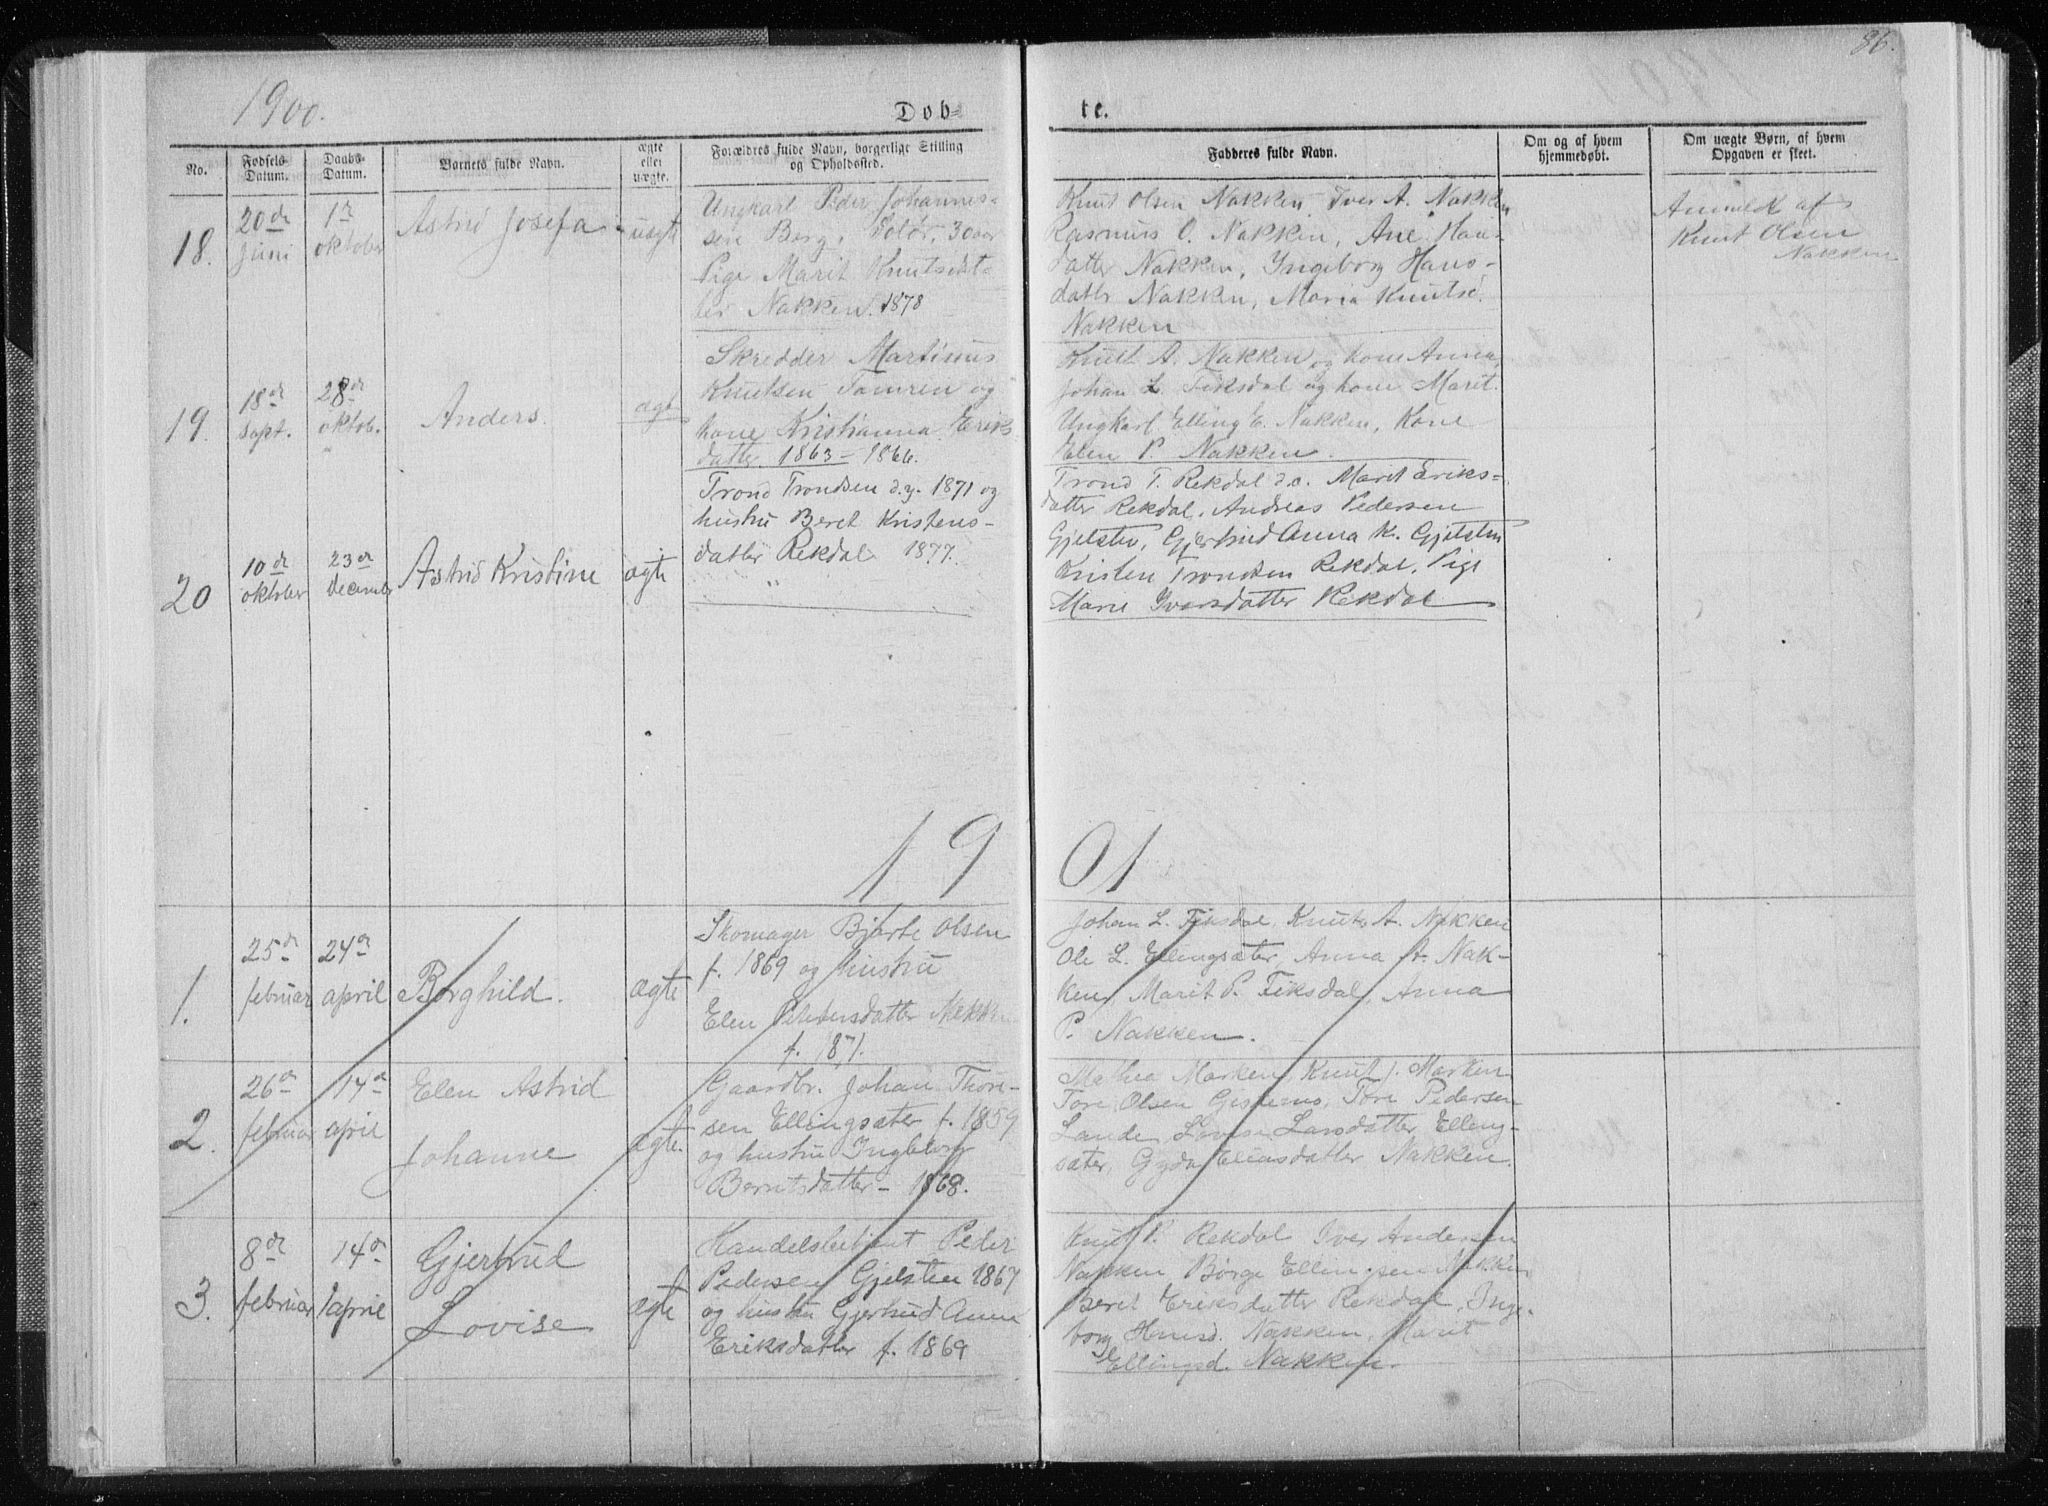 86.
1900.
Døb-
te.
No.
Fødsels-
Datum.
Daabs-
Datum.
Barnets fulde Navn.
ægte
eller
uægte.
Forældres fulde Navn, borgerlige Stilling
og Opholdssted.
Fadderes fulde Navn.
Om og af hvem
hjemmedøbt.
Om uægte Børn, af hvem
Opgaven er skeet.
18.
20de
Juni
1ste
oktober
Astrid Josefa
uægte
Ungkarl Peder Johannes-
sen Berg, Solør, 30 aar
Pige Marit Knutsdat-
ter Nakken f. 1878
Knut Olsen Nakken, Iver A. Nakken
Rasmus O. Nakken, Ane Hans-
datter Nakken, Ingeborg Hans-
datter Nakken, Maria Knutsd.
Nakken
Anmeldt af
Knut Olsen
Nakken
19.
18de
Sept.
28de
oktob.
Anders.
ægte
Skredder Martinus
Knutsen Tomren og
kone Kristianna Eriks
datter 1863 - 1866.
Knut A. Nakken og kone Anna,
Johan L. Fiksdal og kone Marit.
Ungkarl Elling E. Nakken, Kone
Elen P. Nakken.
20
10de
oktober
23de
december
Astrid Kristine
ægte
Trond Trondsen d.y. 1871 og
hustru Beret Kristens-
datter Rekdal 1877.
"
Trond T. Rekdal d.e. Marit Eriks-
datter Rekdal, Andreas Pedersen
Gjelsten, Gjertrud Anna K. Gjelsten
Kristen Trondsen Rekdal, Pige
Marie Ivarsdatter Rekdal
19
01
1.
25de
februar
24de
april
Borghild.
ægte
Skomager Bjarte Olsen
f. 1869 og hustru
Elen Petersdatter Nakken
f. 1871.
Johan L. Fiksdal, Knut A. Nakken
Ole L. Ellingsæter, Anna A. Nak-
ken, Marit P. Fiksdal, Anna
P. Nakken.
2.
26de
februar
14de
april
Elen Astrid
Johanne
ægte.
Gaardbr. Johan Thore-
sen Ellingsæter f. 1859
og hustru Ingeborg
Berntsdatter - 1868.
Mathea Marken, Knut J. Marken
Tore Olsen Gjesteins, Tore Pedersen
Lande, Lovise Larsdatter Elling-
sæter, Gyda Eliasdatter Nakken.
3.
8de
februar
14de
april
Gjertrud
Lovise
ægte
Handelsbetjent Peder
Pedersen Gjelsten 1867
og hustru Gjertrud Anna
Eriksdatter f. 1869
Knut P. Rekdal Iver Andersen
Nakken Børge Ellingsen Nakken
Beret Eriksdatter Rekdal, Inge-
borg Hansd. Nakken, Marit
Ellingsd. Nakken.